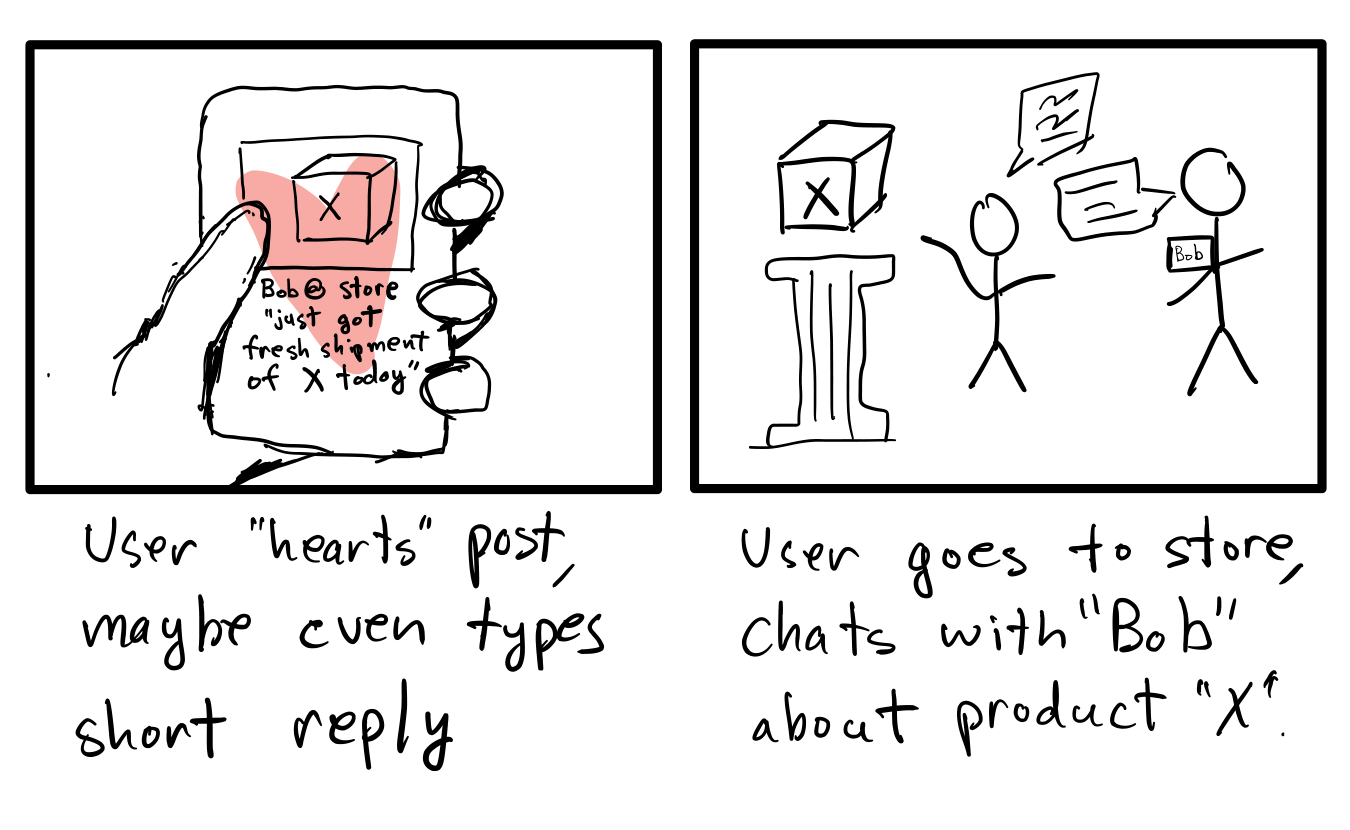 X
Bob@ store
"just got
fresh shipment
of X today"
User "hearts" post,
maybe even types
short reply
X
Bob
User goes to store,
chats with "Bob"
about product "X".